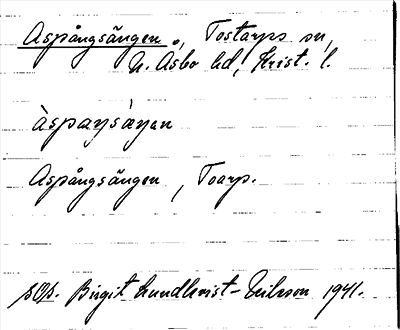 Aspångsängen, Tostarps sn,
N. Åsbo hd, Krist. l.
àspaŋsàŋan
Aspångsängen, Toarp.
Birgit Lundkvist-Erikson 1941.